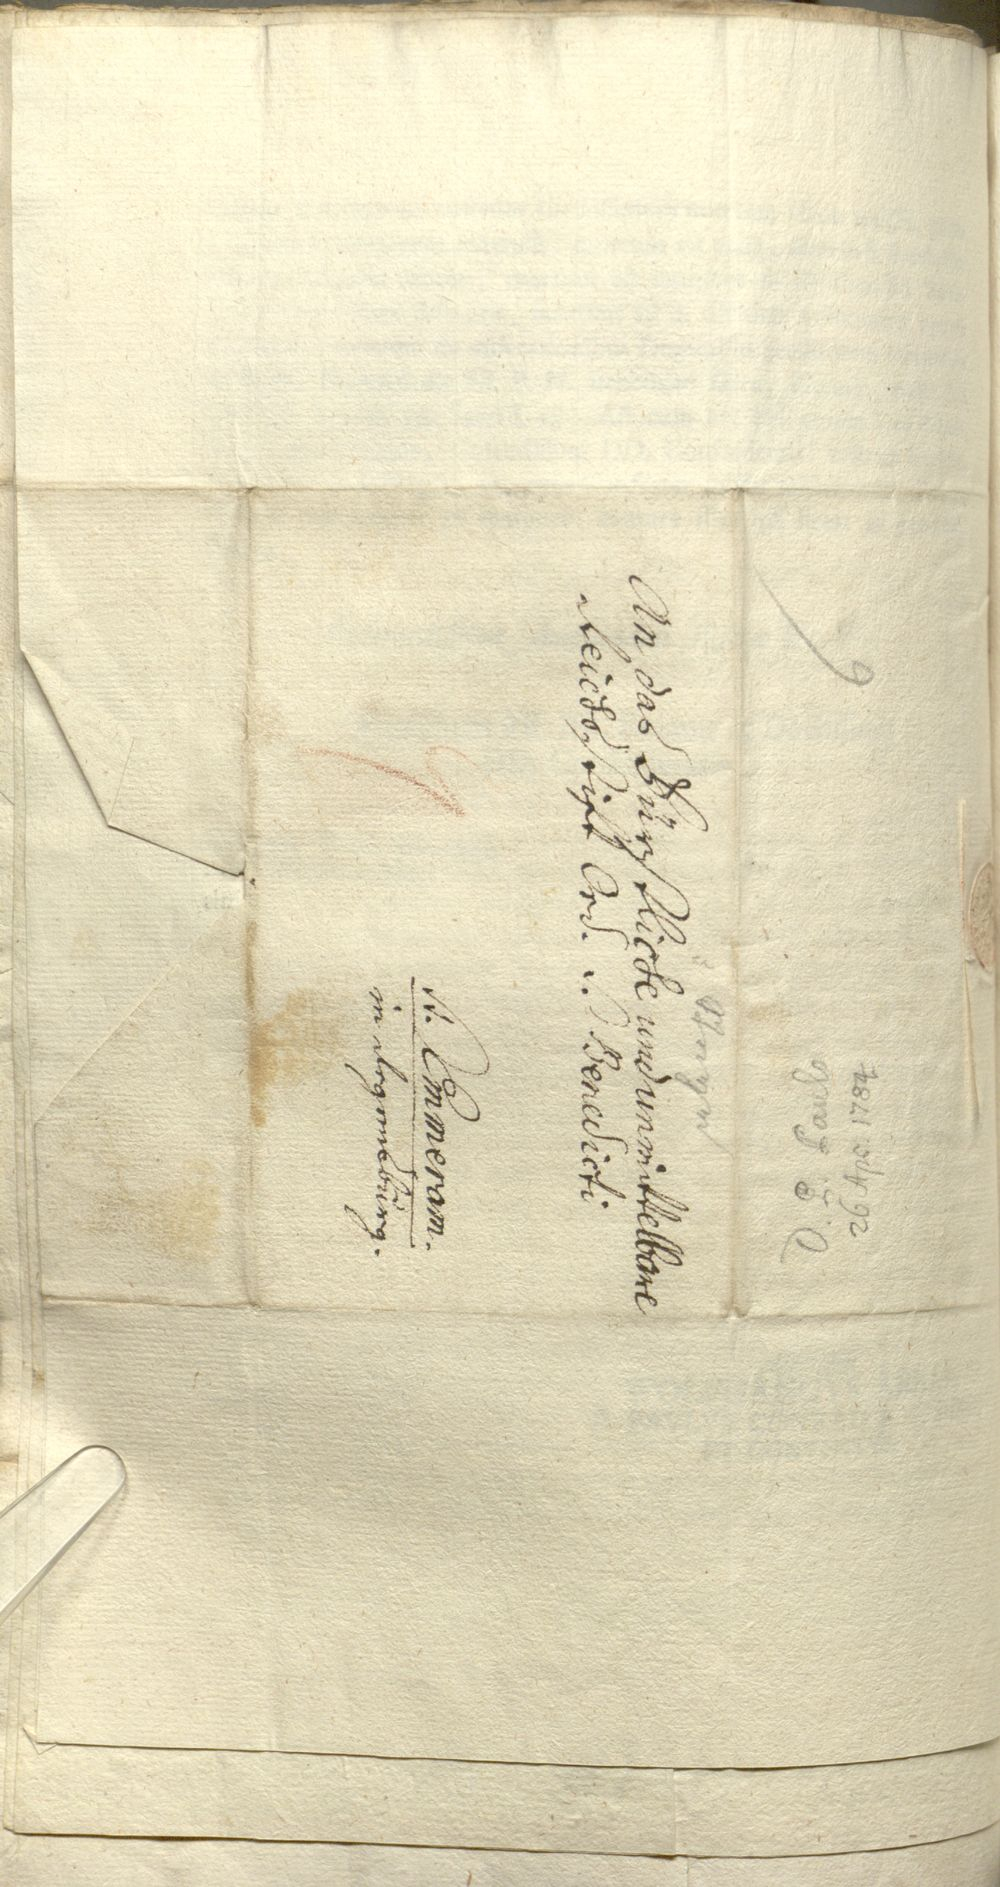 An das Fürstliche und unmittelbare
Reichs Stift Ord. S. Benedicti
St. Emmeram.
in Regensburg.
26 Apr. 1784